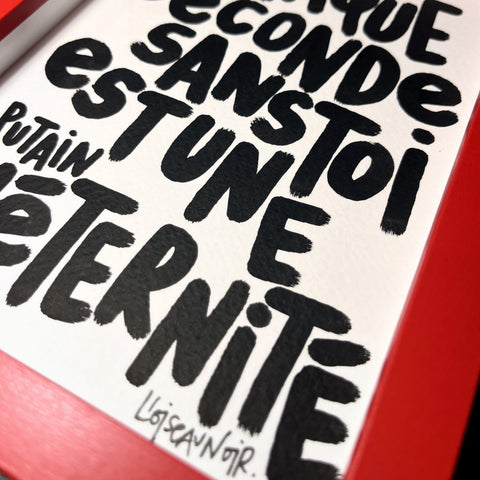 QUE
SeCONDe
SANS TOi
esT UNE
PUTAiN
D'éTERNiTÉ
L'OiSEAUNOiR.